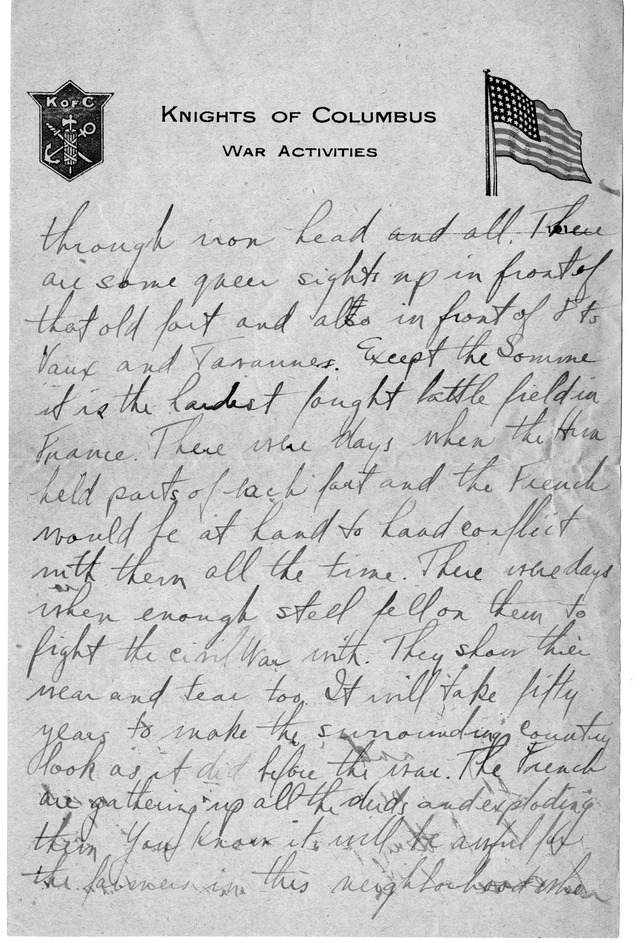 K of C
KNIGHTS OF COLUMBUS
WAR ACTIVITIES
through iron head and all. There
are some queer sights up in front of
that old fort and also in front of Fts
Vaux and Tavannes. Except the Somme
it is the hardest fought battle field in
France. There were days when the Hun
held parts of each fort and the French
would be at hand to hand conflict
with them all the time. There were days
when enough steel fell on them to
fight the civil War with. They show thier
wear and tear too. It will take fifty
years to make the surrounding country
look as it did before the war. The French
are gathering up all the duds and exploding
them You know it will be awful for
the farmers in this neighborhood when